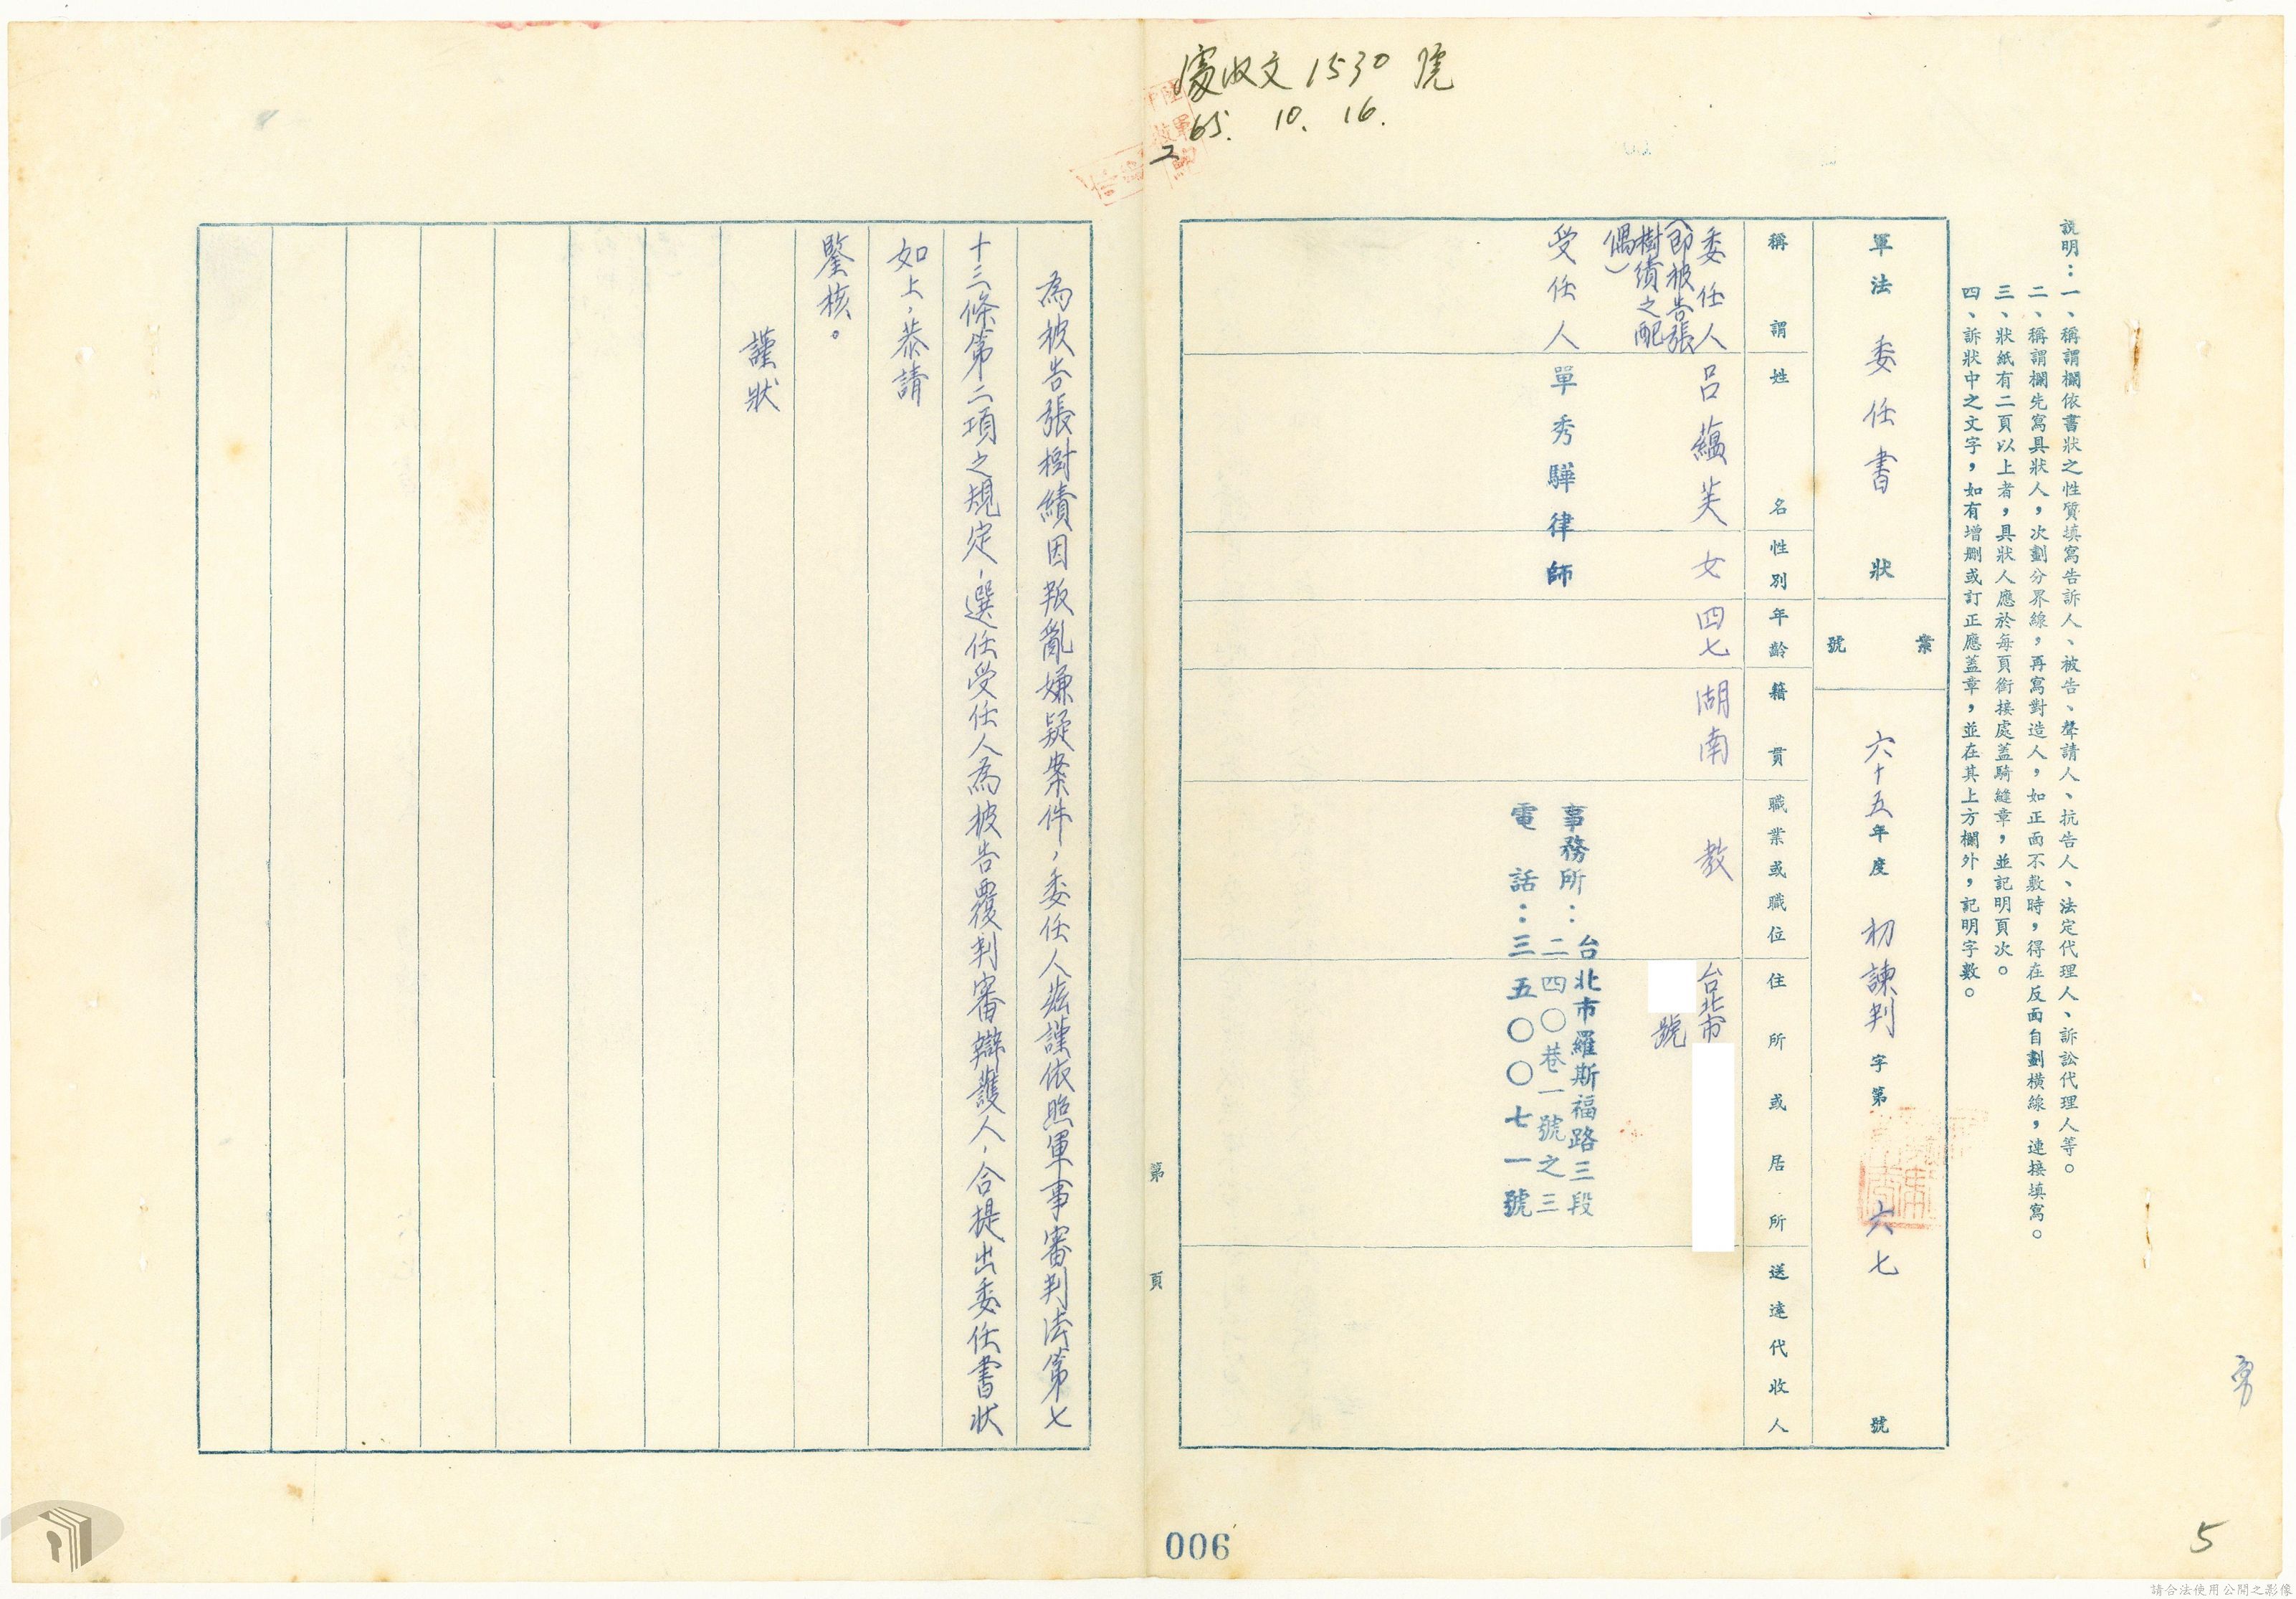 處收文1530號
65. 10. 16.
說明：一、稱謂欄依書狀之性質填寫告訴人、被告、聲請人、抗告人、法定代理人、訴訟代理人等。
二、稱謂欄先寫具狀人，次劃分界線，再寫對造人，如正面不敷時，得在反面自劃橫線，連接填寫。
三、狀紙有二頁以上者，具狀人應於每頁銜接處蓋騎縫章，並記明頁次。
四、訴狀中之文字，如有增刪或訂正應蓋章，並在其上方欄外，記明字數。
軍法 委任書 狀
案號
六十五年度 初諫判字第 六七 號
稱謂 姓名 性別 年齡 籍貫 職業或職位 住所或居所 送達代收人
委任人 呂蘊芙 女 四七 湖南 教 台北市
（即被告張
樹績之配
偶）
號
受任人 單秀驊律師
事務所：台北市羅斯福路三段
二四〇巷一號之三
電話：三五〇〇七一號
第 頁
為被告張樹績因叛亂嫌疑案件，委任人茲謹依照軍事審判法第七
十三條第二項之規定，選任受任人為被告覆判審辯護人，合提出委任書狀
如上，恭請
鑒核。
謹狀
006
5
請合法使用公開之影像